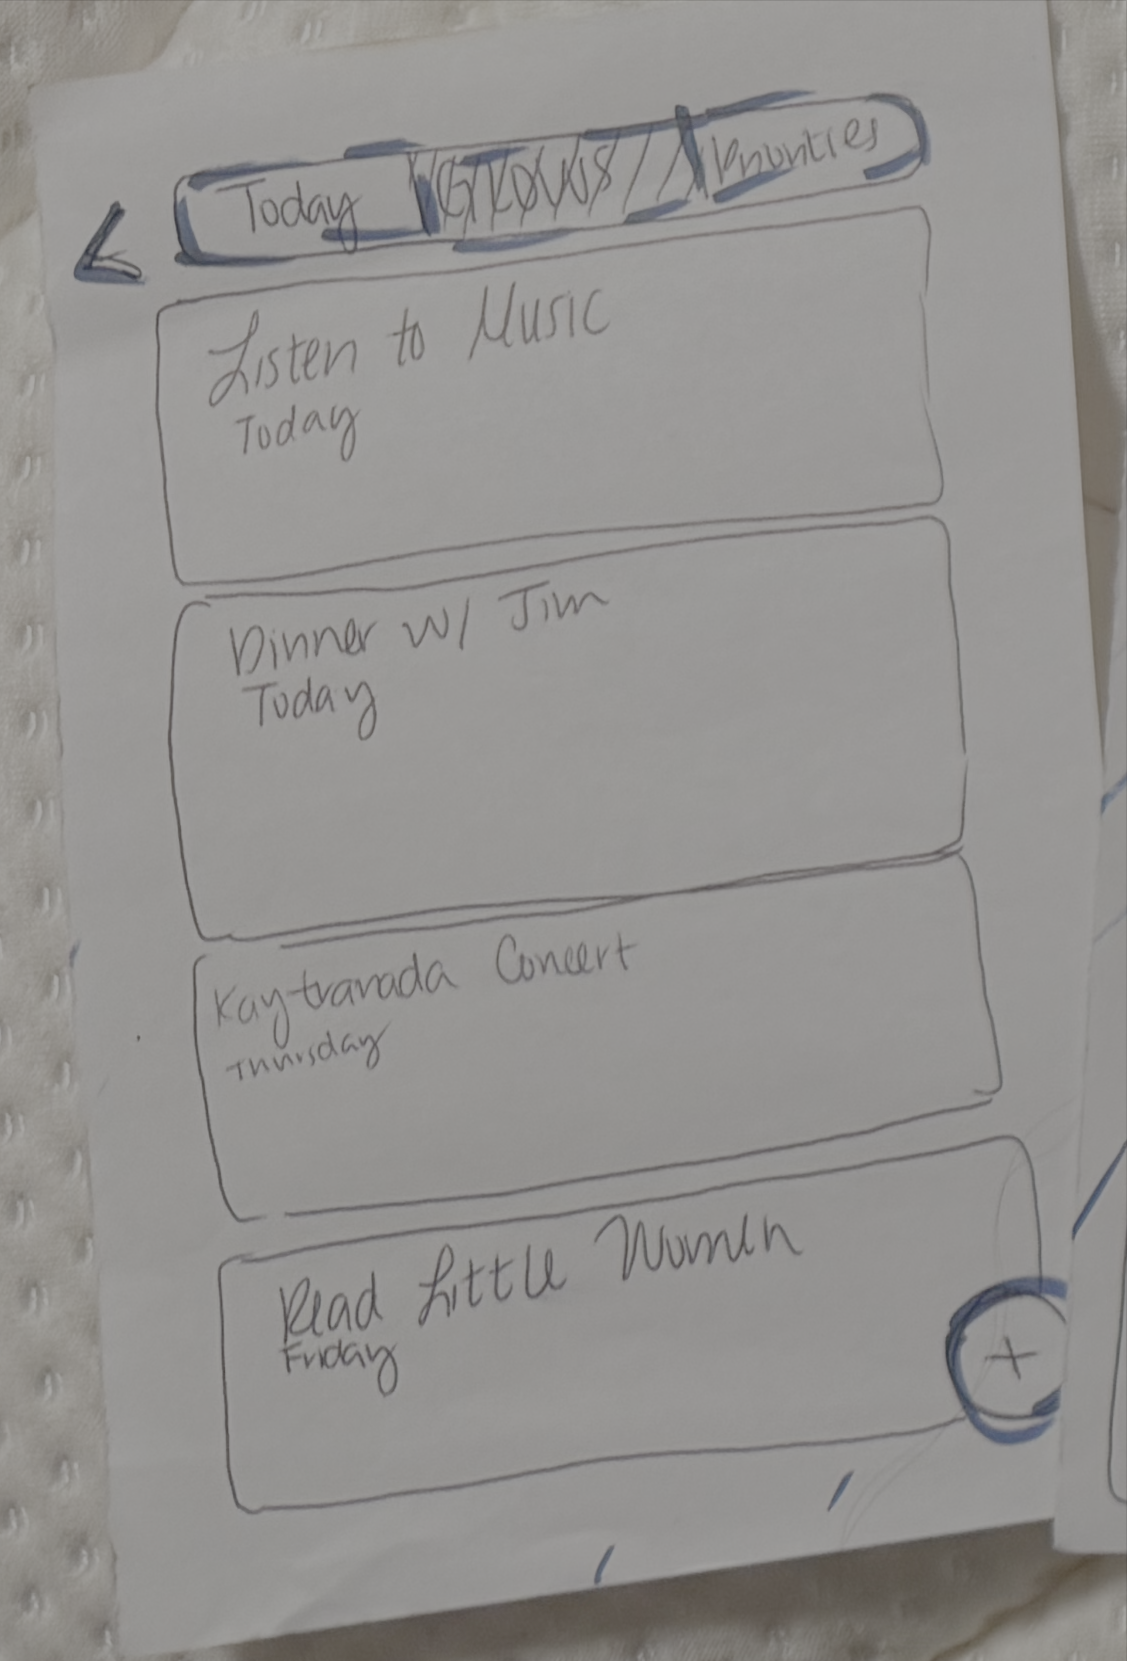 < Today Groups Priorities
Listen to Music
Today
Dinner w/ Jim
Today
Kaytranada Concert
Thursday
Read Little Women
Friday
+